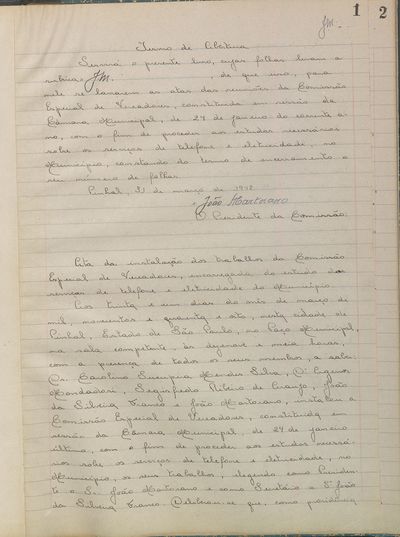 1
2
JM.
Termo de Abertura
Servirá o presente livro, cujas folhas levam a
rubrica JM. , de que uso, para
nele se lançarem as atas das reuniões da Comissão
Especial de Vereadores, constituida em sessão da
Câmara Municipal, de 24 de janeiro do corrente a-
no, com o fim de proceder aos estudos necessários
sobre os serviços de telefone e eletricidade, no
Município, constando do termo de encerramento o
seu número de folhas.
Pinhal, de março de 1948
João Martorano
O Presidente da Comissão.
Ata da instalação dos trabalhos da Comissão
Especial de Vereadores, encarregada do estudo dos
serviços de telefone e eletricidade do Município.
Aos trinta e um dias do mês de março de
mil, novecentos e quarenta e oito, nesta cidade de
Pinhal, Estado de São Paulo, no Paço Municipal,
na sala competente às dezenove e meia horas,
com a presença de todos os seus membros, a saber:
Dr. Carolino Mendes Silva,
Mondadori, Ribeiro de Araujo, João
da Silveira Franco e João Martorano, instalou a
Comissão Especial de Vereadores, constituida em
sessão da Câmara Municipal, de 24 de janeiro
último, com o fim de proceder aos estudos necessá-
rios sobre os serviços de telefone e eletricidade, no
Município, os seus trabalhos, elegendo como Presiden-
te o Sr. João Martorano e como Secretário o Sr. João
da Silveira Franco. Deliberou-se que, como providência